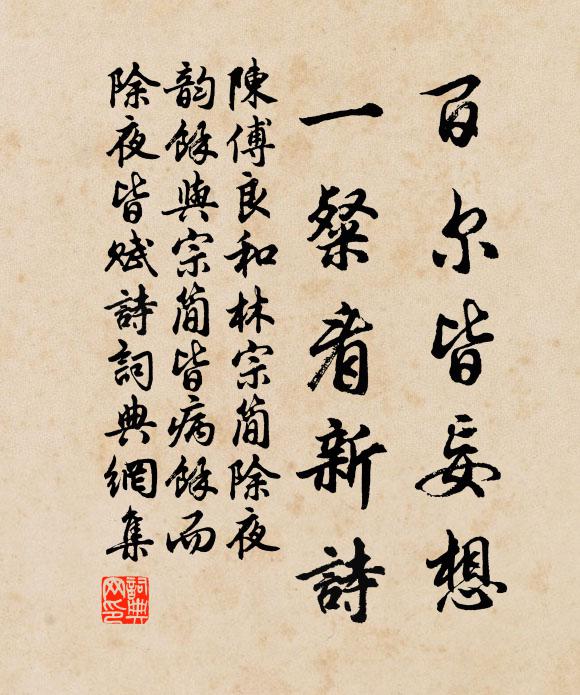 百尔皆妄想
一粲看新詩
陳傅良和林宗簡除夜
韵餘與宗簡皆病餘而
除夜皆賦詩詞典網集
詞典網印